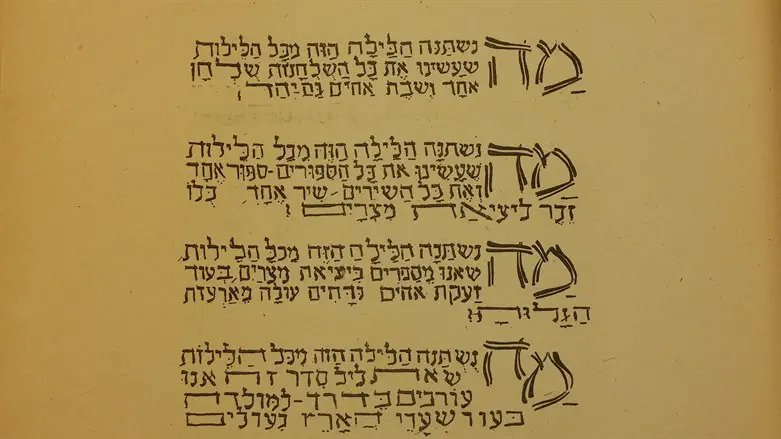 מַה נִשְתַּנָה הַלַיְלָה הַזֶה מִכָּל הַלֵילוֹת
שֶעָשִינוּ אֶת כָּל הַשֻלְחָנוֹת שֻלְחָן
אֶחָד וְשֶבֶת אַחִים גַם יַחַד,
מַה נִשְתַּנָה הַלַיְלָה הַזֶה מִכָּל הַלֵילוֹת
שֶעָשִינוּ אֶת כָּל הַסִפּוּרִים-סִפּוּר אֶחָד
וְאֶת כָּל הַשִירִים-שִיר אֶחָד, כֻּלוֹ
זֵכֶר לִיצִיאַת מִצְרַיִם?
מַה נִשְתַּנָה הַלַיְלָה הַזֶה מִכָּל הַלֵילוֹת,
שאנו מְסַפְּרִים בִּיצִיאַת מִצְרַיִם, בְּעוֹד
זַעֲקַת אַחִים נִדָּחִים עוֹלָה מֵאַרְצוֹת
הַגָלוּת?
מַה נִשְתַּנָה הַלַיְלָה הַזֶה מִכָּל הַלֵילוֹת
שאת ליל סדר זה אנו
עורכים בַּדֶרֶךְ-לַמּוֹלֶדֶת
בעוד שַעֲרֵי הָאָרֶץ נְעוּלִים